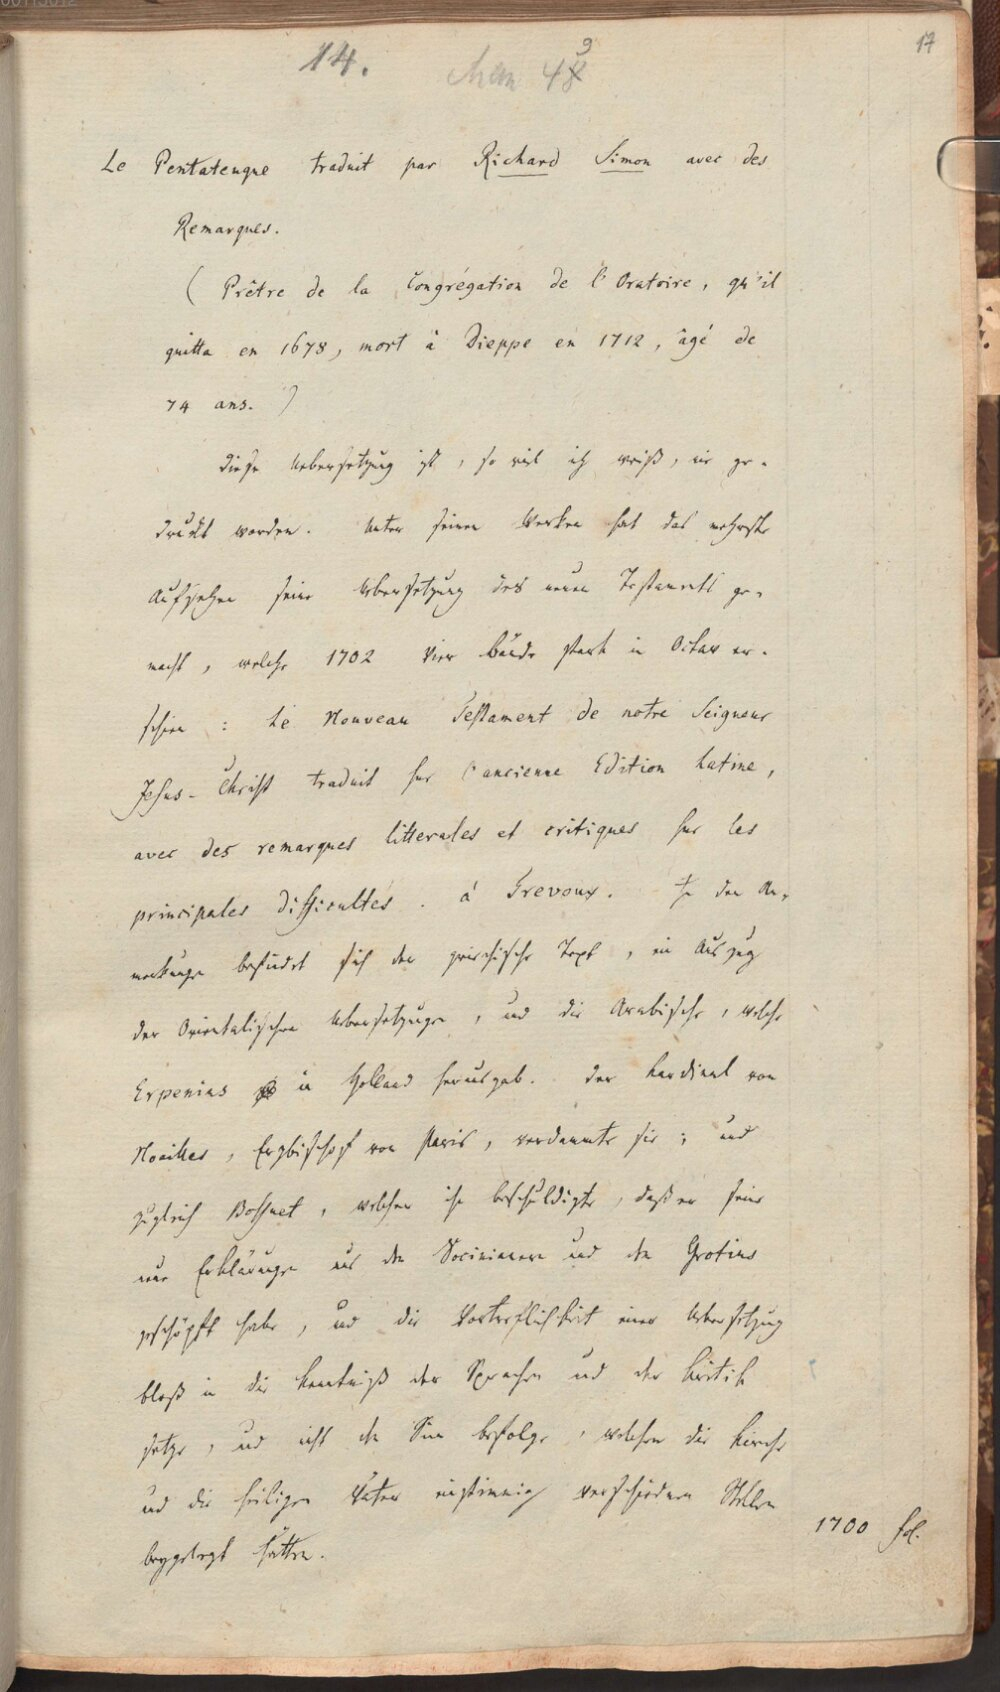 00115012
17
14.
Man 49
Le Pentateuque traduit par Richard Simon avec des
Remarques.
( Prêtre de la Congrégation de l'Oratoire, qu'il
quitta en 1678, mort à Dieppe en 1712, âgé de
74 ans. )
Diese Uebersetzung ist, so viel ich weiß, nie ge-
druckt worden. Unter seinen Werken hat das mehrste
Aufsehen seine Uebersetzung des neuen Testaments ge-
macht, welche 1702 vier Bände stark in Octav er-
schien : Le Nouveau Testament de notre Seigneur
Jesus-Christ traduit sur l'ancienne Edition Latine,
avec des remarques litterales et critiques sur les
principales difficultés. à Trevoux. In den An-
merkungen befindet sich der griechische Text, ein Auszug
der Orientalischen Uebersetzungen, und die Arabische, welche
Erpenius in Holland herausgab. Der Kardinal von
Noailles, Erzbischof von Paris, verdammte sie; und
zugleich Bossuet, welcher ihn beschuldigte, daß er seine
neue Erklärungen aus den Socinianern und den Grotius
geschöpft habe, und die Vortreflichkeit einer Uebersetzung
bloß in die Kenntniß der Sprachen und der Kritik
setze, und nicht den Sinn befolge, welchen die Kirche
und die heiligen Väter einstimmig verschiednen Stellen
beygelegt hätten.
1700 fol.